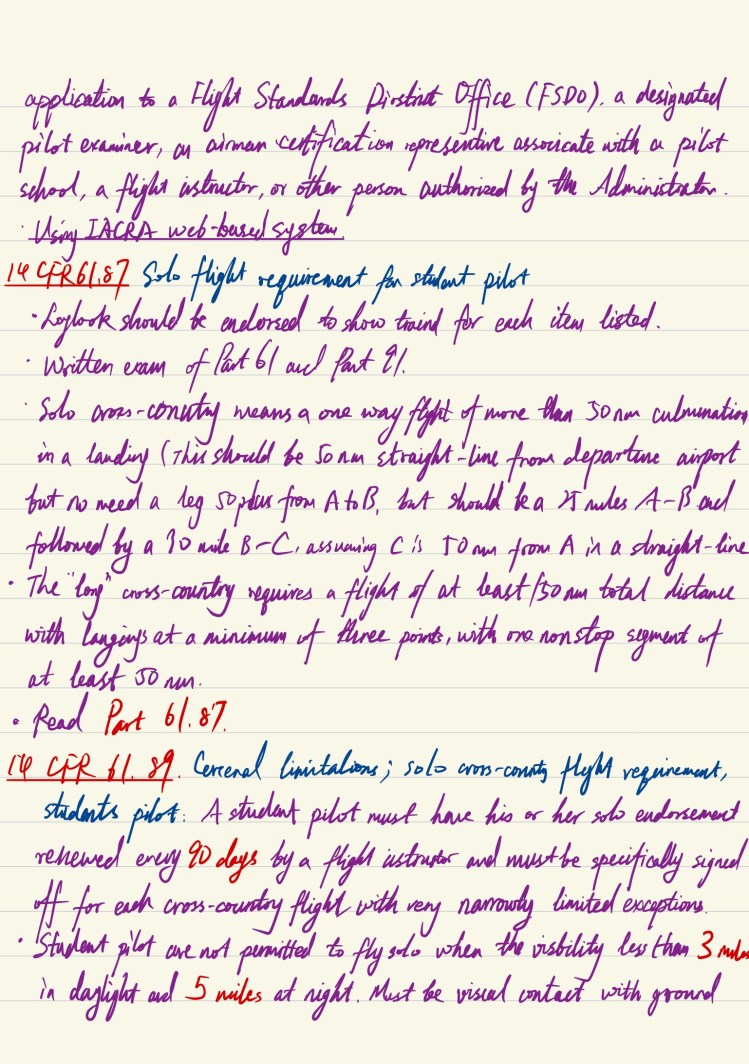 application to a Flight Standards Dirstrict Office (FSDO). a designated
pilot examiner, an airman certification representive associcate with a pilot
school, a flight istructor, or other person authorized by the Administrator.
· Using IACRA web-based system.
14 CFR 61.87 Solo flight requirement for student pilot
· Logbook should be endorsed to show traind for each item listed.
· Written exam of Part 61 and Part 91.
· Solo cross-country means a one way flight of more than 50 nm culmination
in a landing (This should be 50 nm straight-line from departure airport
but no need a leg 50 plus from A to B, but should be a 25 miles A-B and
followed by a 30 mile B-C, assuming C is 50 nm from A in a straight-line
· The "long" cross-country requires a flight of at least 150 nm total distance
with langings at a minimum of three points, with one nonstop segment of
at least 50 nm.
· Read Part 61.87.
14 CFR 61.89. Cerenal limitations; solo cross-county flight requirement,
students pilot: A student pilot must have his or her solo endorsement
renewed every 90 days by a flight istrustor and must be specifically signed
off for each cross-country flight with very narrowly limited exceptions.
· Student pilot are not permitted to fly solo when the visbility less than 3 miles
in daylight and 5 miles at night. Must be visual contact with ground